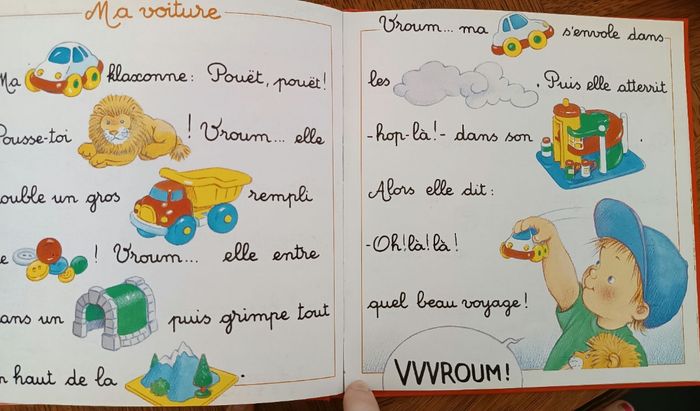 Ma voiture
Ma klaxonne : Pouët, pouët!
Pousse-toi ! Vroum... elle
double un gros rempli
de ! Vroum... elle entre
dans un puis grimpe tout
en haut de la
Vroum... ma s'envole dans
les . Puis elle atterrit
-hop-là!- dans son .
Alors elle dit :
-Oh!là!là!
quel beau voyage!
VVVROUM!